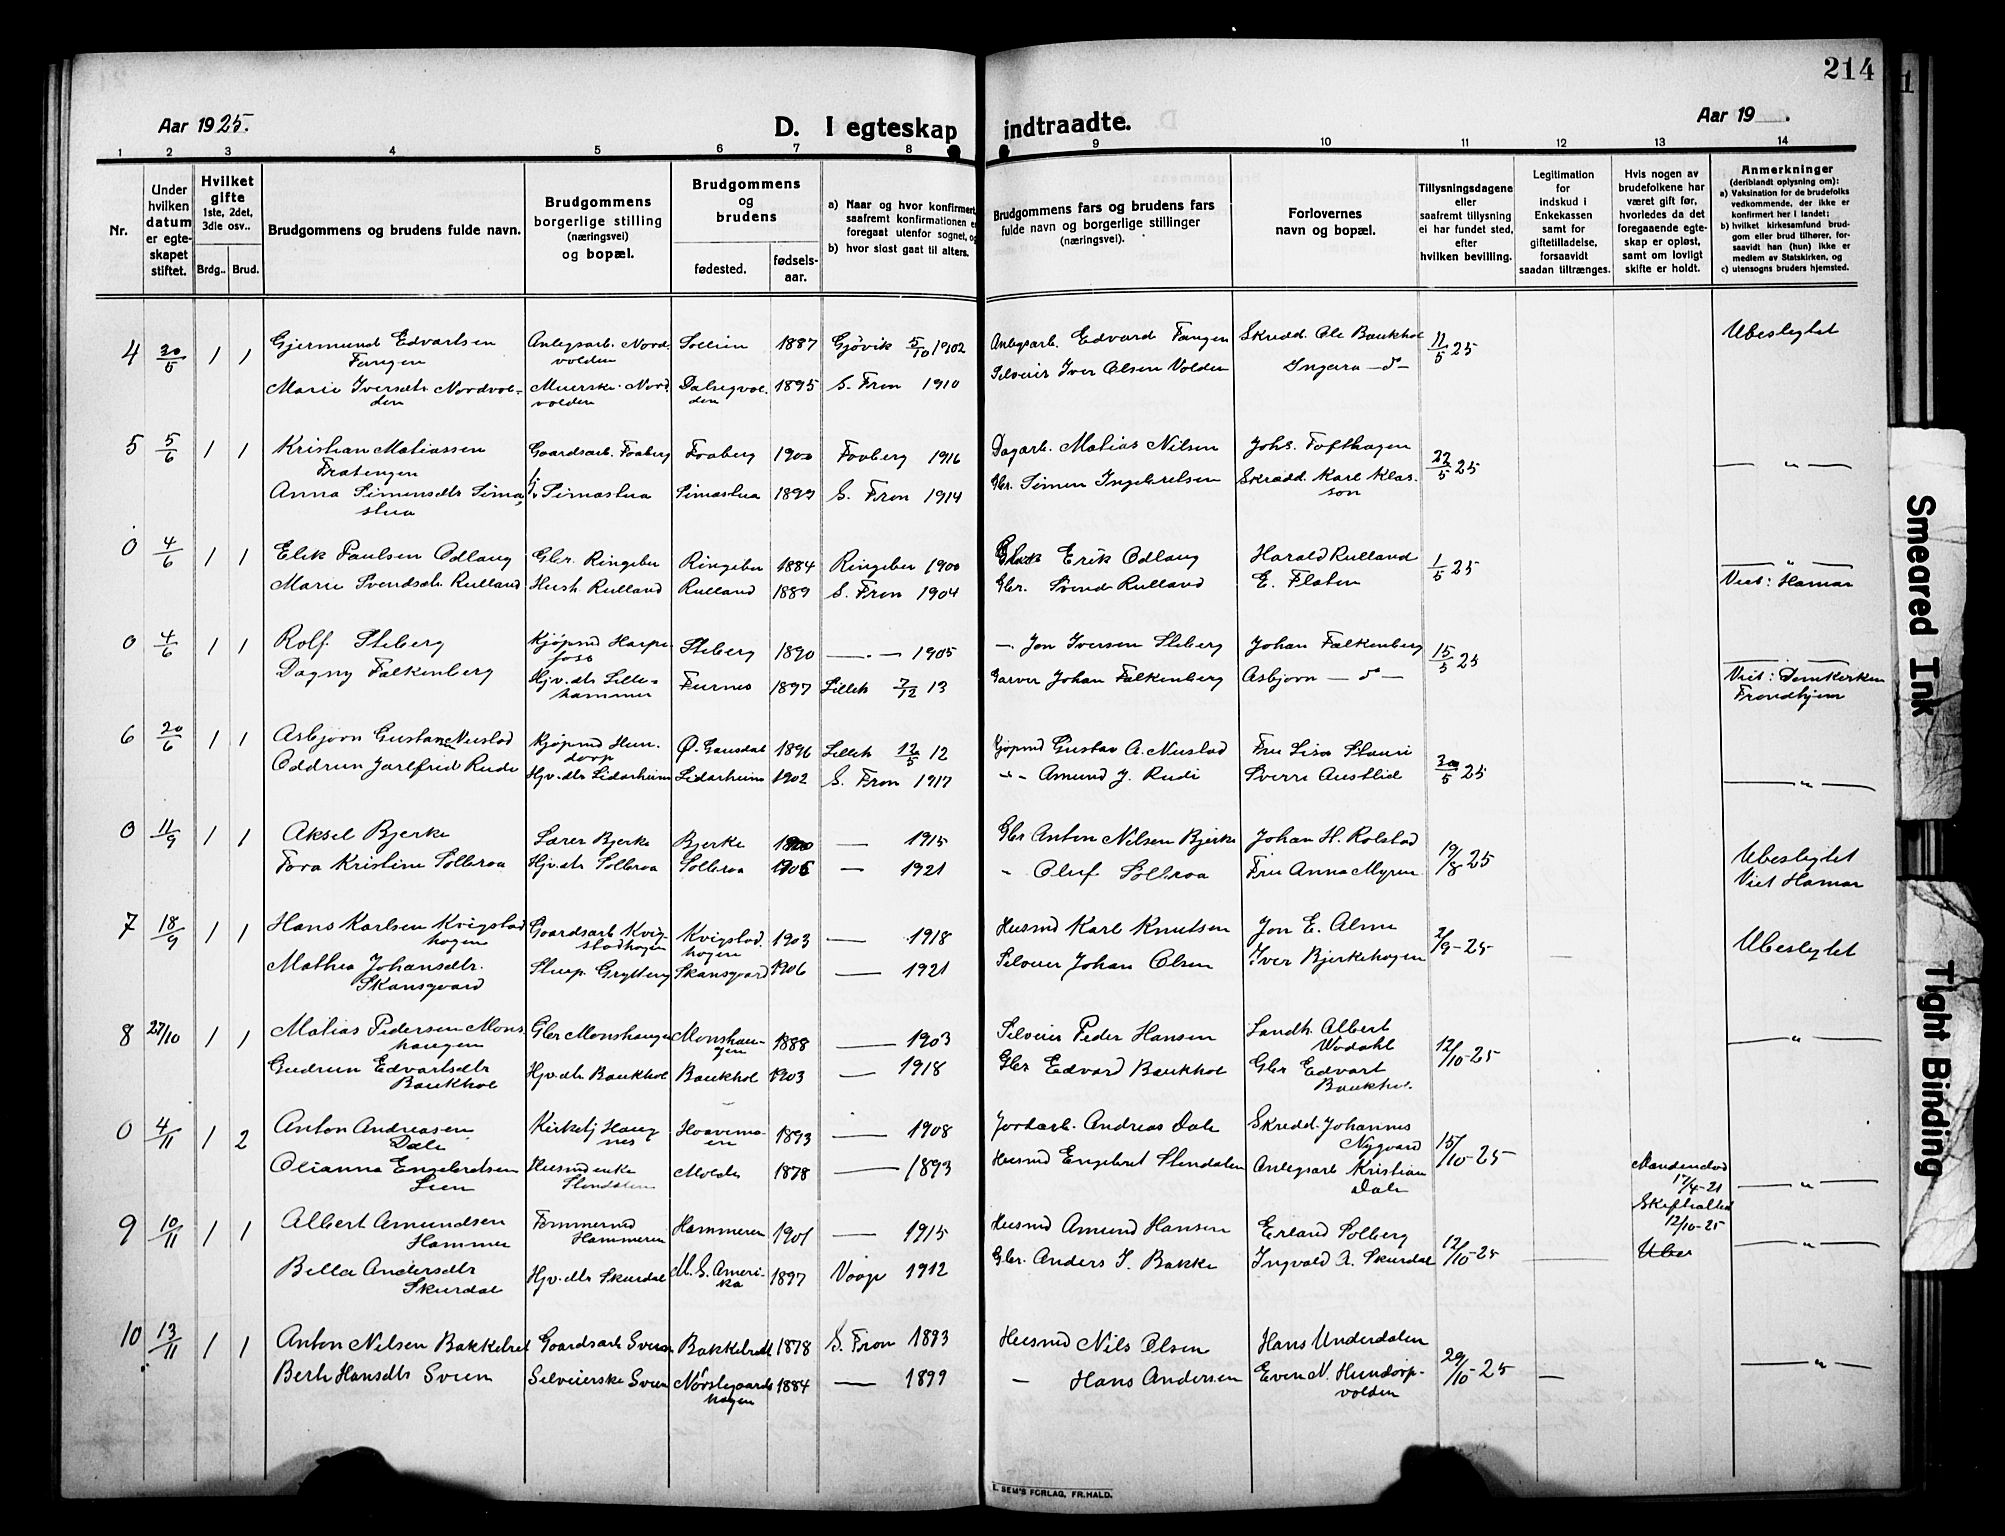 214
Aar 1925.
D. I egteskap indtraadte.
Aar 19 .
1 2 3 4 5 6 7 8 9 10 11 12 13 14
Nr.
Under hvilken datum er egteskapet stiftet.
Hvilket gifte 1ste, 2det, 3die osv..
Brdg.. Brud.
Brudgommens og brudens fulde navn.
Brudgommens borgerlige stilling (næringsvei) og bopæl.
Brudgommens og brudens
fødested.
fødsels-aar.
a) Naar og hvor konfirmert,
saafremt konfirmationen e
foregaat utenfor sognet, og
b) hvor sidst gaat til alters.
Brudgommens fars og brudens fars
fulde navn og borgerlige stillinger
(næringsvei).
Forlovernes
navn og bopæl.
Tillysningsdagene
eller
saafremt tillysning
ei har fundet sted,
efter
hvilken bevilling.
Legitimation
for
indskud i
Enkekassen
samt for
giftetilladelse,
forsaavidt
saadan tiltrænges.
Hvis nogen av
brudefolkene har
været gift før,
hvorledes da det
foregaaende egte-
skap er opløst,
samt om lovligt
skifte er holdt.
Anmerkninger
(deriblandt oplysning om):
a) Vaksination for de brudefolks
vedkommende, der ikke er
konfirmert her i landet;
b) hvilket kirkesamfund brud-
gom eller brud tilhører, for-
saavidt han (hun) ikke er
medlem av Statskirken, og
c) utensogns bruders hjemsted.
4 30/5 1 1 Gjermund Edvartsen Fangen Anlegsarb. Nordvolden Sollien 1887 Gjøvik 5/10 1902 Anlegsarb. Edvard Fangen Skredd. Ole Baukhol 11/5 25 Ubeslegtet
Marie Iversdtr Nordvolden Meierske Nordvolden Dalsegvolden 1895 S. Fron 1910 Selveier Iver Olsen Volden Ingara -d-
5 5/6 1 1 Kristian Matiassen Fratengen Gaardsarb. Faaberg Faaberg 1900 Faaberg 1916 Dagarb. Matias Nilsen Johs. Tofthagen 22/5 25 — " —
Anna Simensdtr Simastua Simastua Simastua 1899 S. Fron 1914 Gbr. Simen Ingebretsen Skradd. Karl Klasson
0 4/6 1 1 Elik Paulsen Odlaug Gbr. Ringebu Ringebu 1884 Ringebu 1900 Erik Odlaug Harald Rulland 1/5 25 — " —
Marie Svendsdtr Rulland Hush. Rulland Rulland 1889 S. Fron 1904 Gbr. Svend Rulland E. Flaten Viet: Hamar
0 4/6 1 1 Rolf Steberg Kjøpmd Harpefoss Steberg 1890 — . — 1905 — Jon Iversen Steberg Johan Falkenberg 15/5 25 — . —
Dagny Falkenberg Hjv. dtr Lillehammer Furnes 1897 Lilleh 7/12 13 Garver Johan Falkenberg Asbjørn -d- Viet: Domkirken Trondhjem
6 20/6 1 1 Asbjørn Gustav Neustad Kjøpmd Hundorp Ø. Gausdal 1896 Lilleh 12/5 12 Kjøpmd Gustav A. Neustad Fru Lisa Staui 30/5 25
Oddrun Jarlfrid Rudi Hjv. dtr Lidarheim Lidarheim 1902 S. Fron 1917 -"- Amund J. Rudi Sverre Austlid — " —
0 11/9 1 1 Aksel Bjerke Lærer Bjerke Bjerke 1900 — 1915 Gbr Anton Nilsen Bjerke Johan H. Rolstad 19/8 25 Ubeslegtet
Tora Kristine Solbraa Hjv. dtr Solbraa Solbraa 1906 — 1921 - Oluf Solbraa Fru Anna Myrum Viet Hamar
7 18/9 1 1 Hans Karlsen Kvigstadhagen Gaardsarb Kvigstadhagen Kvigstadhagen 1903 — 1918 Husmd Karl Knutsen Jon E. Alme 2/9-25 Ubeslegtet
Mathea Johansdtr. Skansgaard Stuep. Grytberg Skansgaard 1906 — 1921 Selveier Johan Olsen Iver Bjerkehagen —
8 27/10 1 1 Matias Pedersen Monshaugen Gbr Monshaugen Monshaugen 1888 — 1903 Selveier Peder Hansen Landh. Albert Wodahl 12/10-25 — " —
Gudrun Edvartsdtr Baukhol Hjv. dtr Baukhol Baukhol 1903 — 1918 Gbr Edvard Baukhol Gbr Edvart Baukhol.
0 4/11 1 2 Anton Andreasen Dale Kirketj Haugnes 1893 — 1908 Jordarb. Andreas Dale Skredd. Johannes Nygaard 15/10-25
Olianna Engebretsen Lien Husmd enke Slendalen Molde 1878 — 1893 Husmd Engebret Slendalen Anlegsarb Kristian Dale Manden død 17/4-21 Skifte altid 12/10-25 — " —
9 10/11 1 1 Albert Amundsen Hammer Tømmermd Hammeren Hammeren 1901 — 1915 Husmd Amund Hansen Erland Solberg 12/10-25 — Ubes — " —
Bella Andersdtr Skurdal Hjv. dtr Skurdal M. S. Amerika 1897 Vaage 1912 Gbr. Anders I. Bakke Ingvald A. Skurdal
10 13/11 1 1 Anton Nilsen Bakkebret Gaardsarb Sveen Bakkebret 1878 S. Fron 1893 Husmd Nils Olsen Hans Underdalen 29/10-25 — — " —
Berte Hansdtr Sveen Selveierske Sveen Norstegaardshagen 1884 — 1899 - Hans Andersen Even N. Hundorpvolden
I. SEM'S FORLAG, FR.HALD.
Smeared Ink
Tight Binding